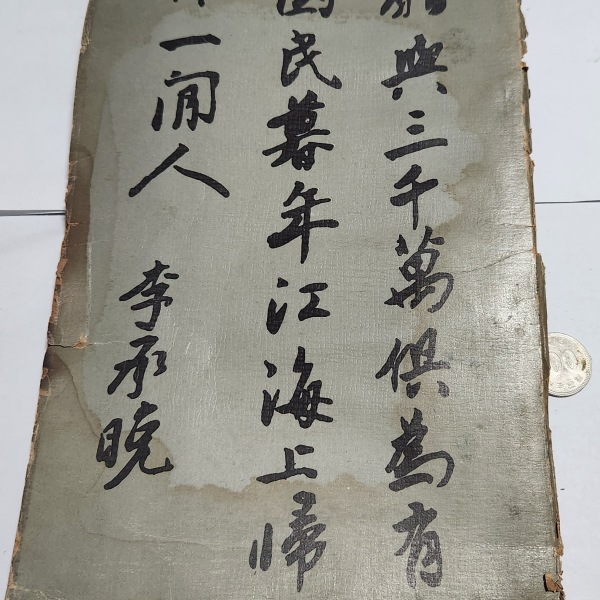 與三千萬俱為有
國民暮年江海上歸
一閒人
李承晚